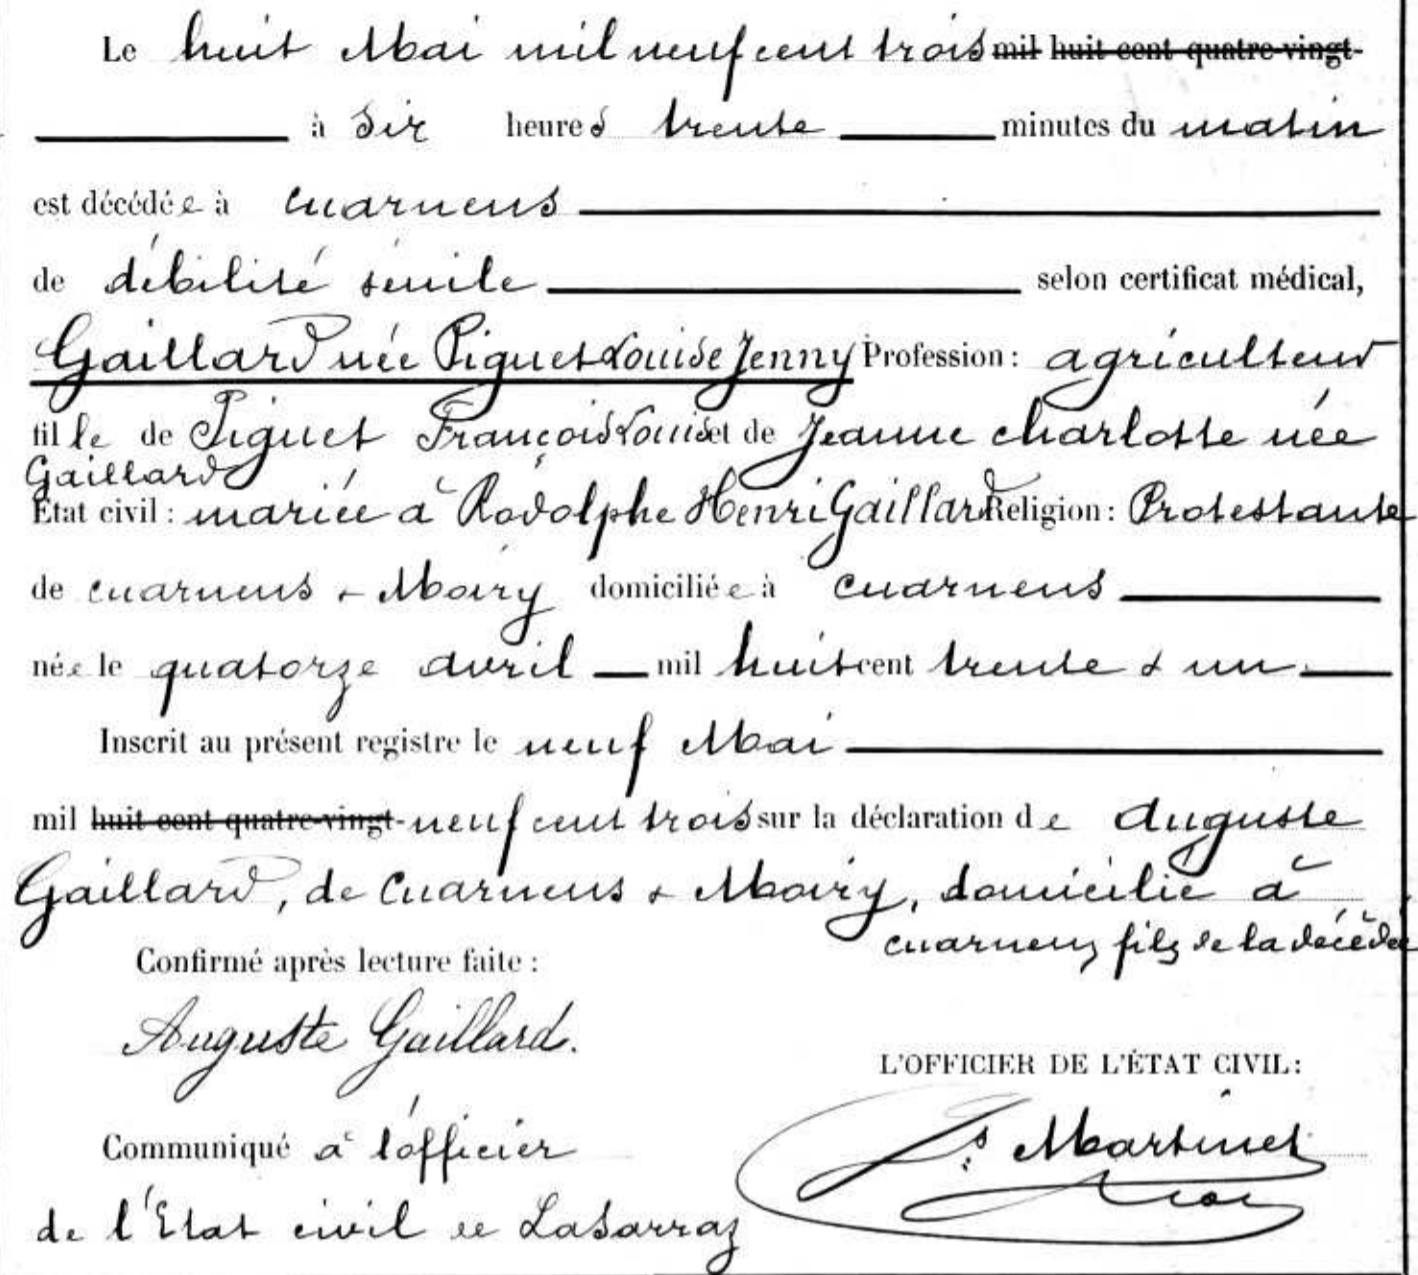 Le huit Mai mil neuf cent trois mil huit cent quatre-vingt-
à six heures trente minutes du matin
est décédée à Cuarnens
de débilité sénile selon certificat médical,
Gaillard née Piguet Louise Jenny Profession : agriculteur
fille de Piguet François Louis et de Jeanne Charlotte née
Gaillard
État civil : mariée à Rodolphe Henri Gaillard Religion : Protestante
de Cuarnens & Moiry domiciliée à Cuarnens
née le quatorze avril mil huit cent trente & un
Inscrit au présent registre le neuf Mai
mil huit cent quatre-vingt- neuf cent trois sur la déclaration de Auguste
Gaillard, de Cuarnens & Moiry, domicilié à
Cuarnens, fils de la décédée
Confirmé après lecture faite :
Auguste Gaillard.
L'OFFICIER DE L'ÉTAT CIVIL :
Communiqué à l'officier
Js Martinet
de l'Etat civil de LaSarraz